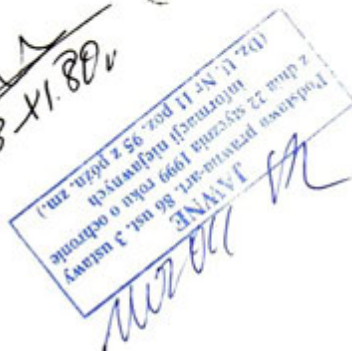 XI.80r
JAWNE
Podstawa prawna-art. 86 ust. 3 ustawy
z dnia 22 stycznia 1999 roku o ochronie
informacji niejawnych
(Dz. U. Nr 11 poz. 95 z późn. zm.)